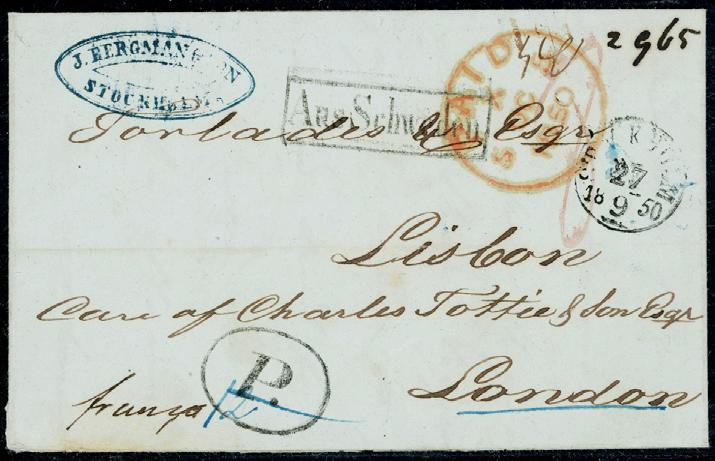 2 965
J. BERGMAN & SON
STOCKHOLM
PAID
1850
Aus Schweden
STOCKHOLM
27
9
18 50
Torlades & Esqr
Lisbon
Care of Charles Tottie & Son Esqr
P.
franco
London